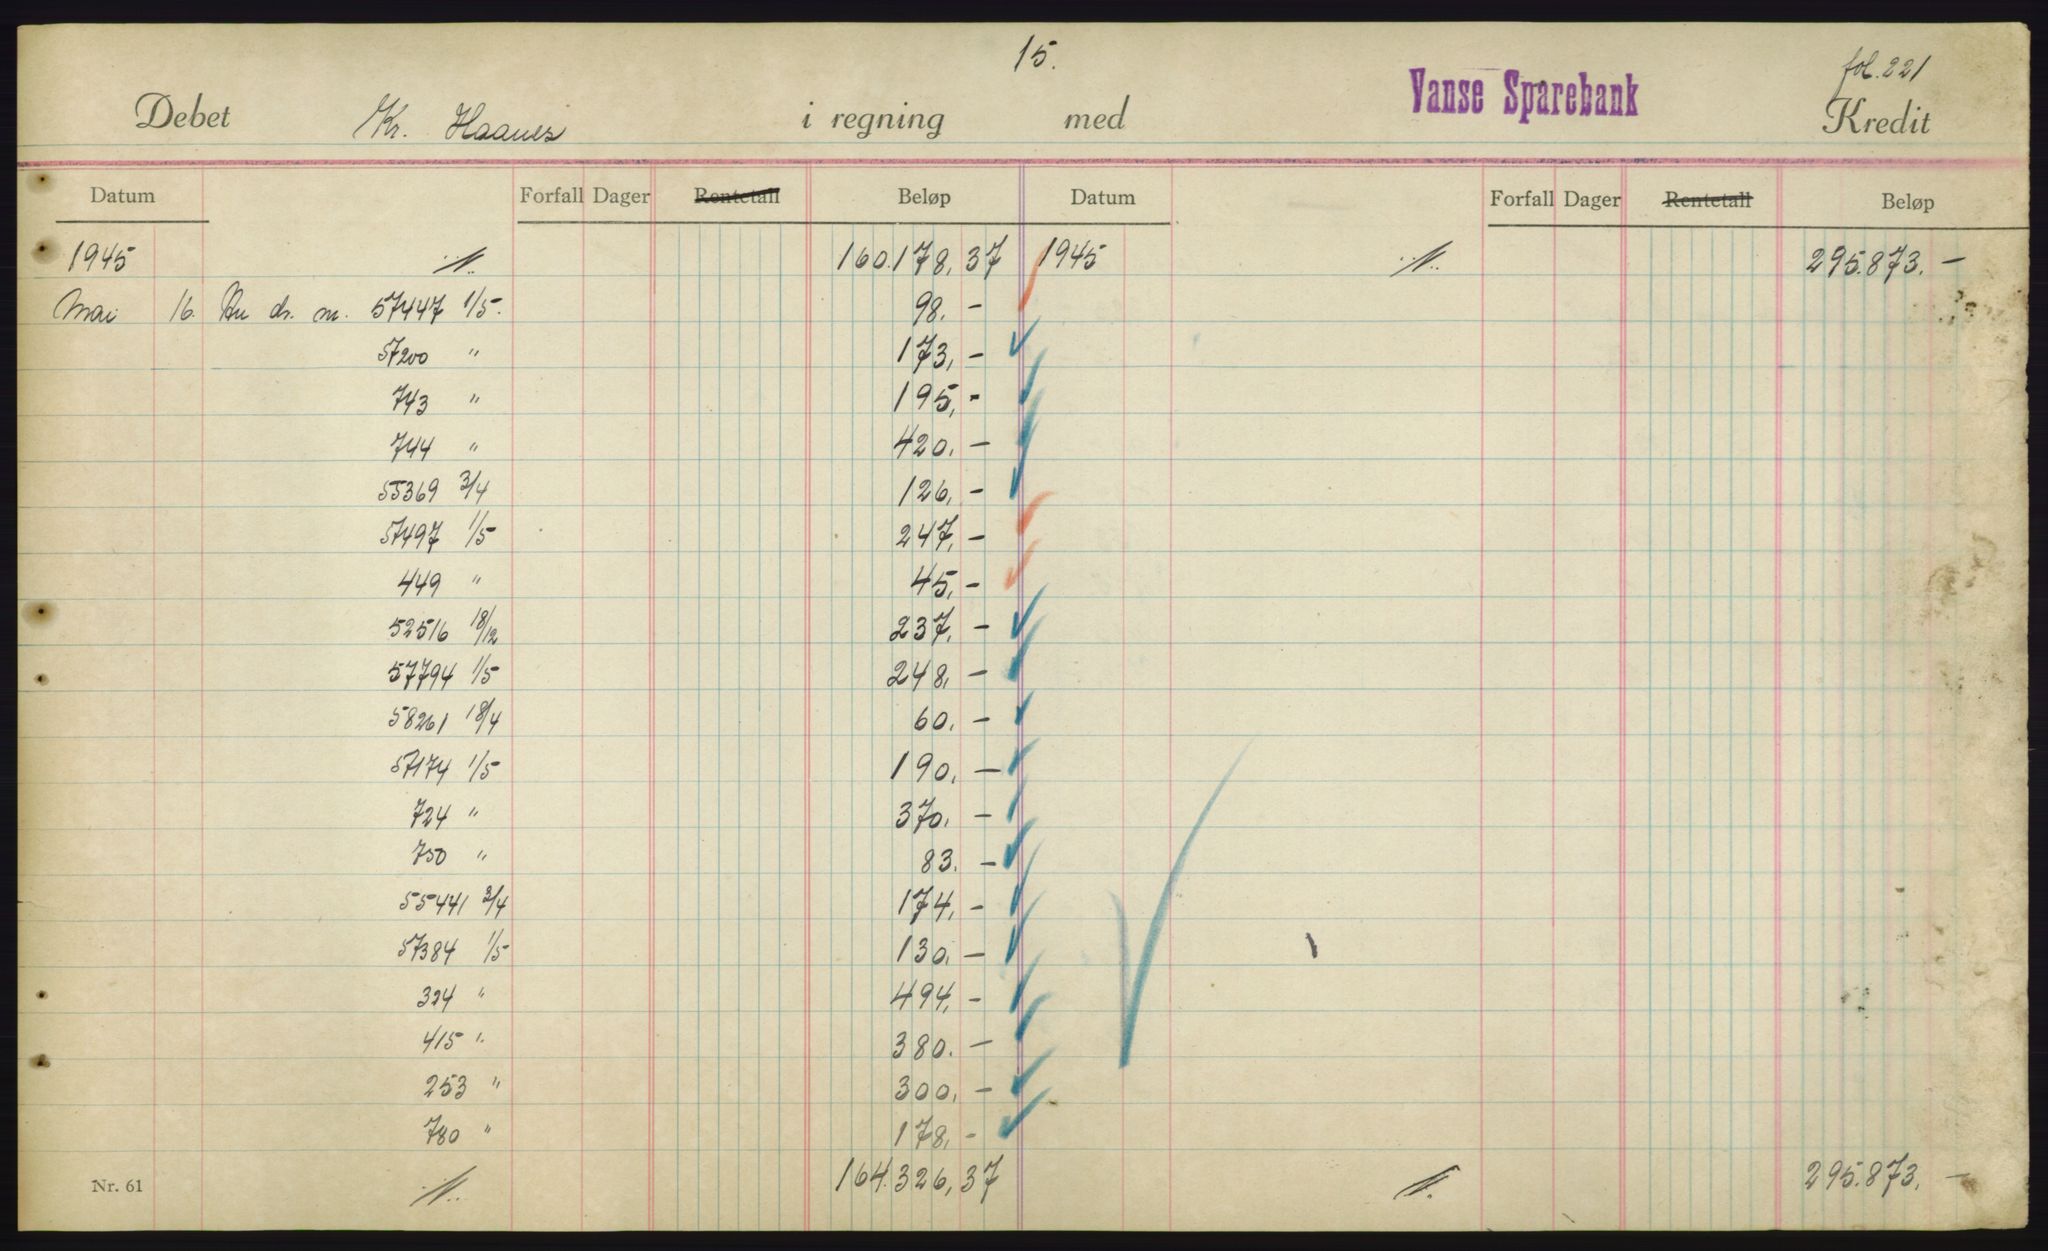 15.
fol. 221
Debet Kr. Haanes i regning med Vanse Sparebank Kredit
Datum Forfall Dager Rentetall Beløp Datum Forfall Dager Rentetall Beløp
1945 160.178,37 1945 295.873.—
Mai 16. An dr. m. 57447 1/5. 98.—
57200 " 173,—
743 " 195,-
744 " 420.—
55369 3/4 126,—
57497 1/5 247,—
449 " 45,—
52516 18/12 237,—
57794 1/5 248,—
58261 18/4 60.—
57174 1/5 190.—
724 " 370.—
750 " 83.—
55441 3/4 174,—
57384 1/5 130,—
324 " 494,—
415 " 380.—
253 " 300,—
780 " 178,-
Nr. 61 164.326,37 295.873.—